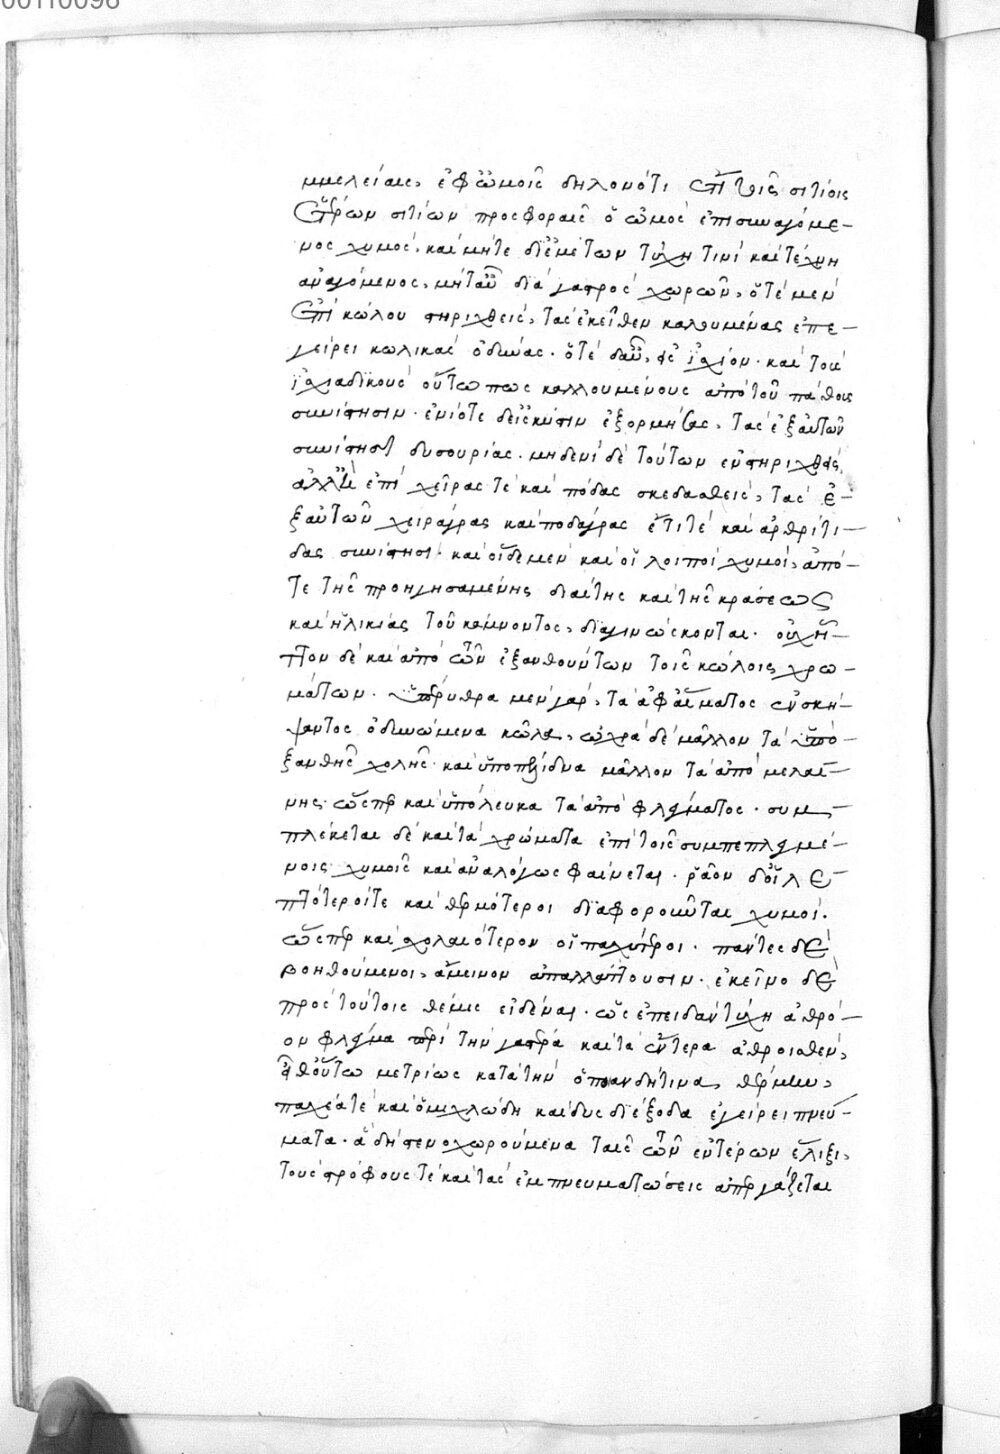 00110098
μμελείαις, ἐφ' ὠμοῖς δηλονότι ἐπὶ τοῖς σιτίοις
ἑτέρων σιτίων προσφοραῖς ὁ ὠμὸς ἐπισυναγόμε-
νος χυμός, καὶ μήτε δι' ἐμέτων τύχη τινὶ καὶ τέχνη
ἀναγόμενος, μήτ' αὖ διὰ γαστρὸς χωρῶν, ὁτὲ μὲν
ἐπὶ κώλου στηριχθεὶς, τὰς ἐκεῖθεν καλουμένας ἐπε-
γείρει κωλικὰς ὀδύνας. ὁτὲ δ' αὖ, ἐς ἰλιόν. καὶ τοὺς
ἰλιαδικοὺς οὕτω πως καλλουμένους ἀπὸ τοῦ πάθους
συνίστησιν. ἐνίοτε δ' εἰς κύστιν ἐξορμήσας, τὰς ἐξ αὐτῶν
συνίστησι δυσουρίας. μηδενὶ δὲ τούτων ἐνστηριχθεὶς,
ἀλλ' ἐπὶ χεῖρας τὲ καὶ πόδας σκεδασθεὶς, τὰς ἐ-
ξ αὐτῶν χειράγρας καὶ ποδάγρας ἔτι τὲ καὶ ἀρθρίτι-
δας συνίστησι. καὶ οἵδε μὲν καὶ οἱ λοιποὶ χυμοὶ, ἀπό-
τε τῆς προηγησαμένης διαίτης καὶ τῆς κράσεως
καὶ ἡλικίας τοῦ κάμνοντος, διαγινώσκονται. οὐχ ἧ-
ττον δὲ καὶ ἀπὸ τῶν ἐξανθούντων τοῖς κώλοις χρω-
μάτων. ὑπέρυθρα μὲν γὰρ, τὰ ἀφ' αἵματος ἐνσκή-
ψαντος ὀδυνώμενα κῶλα, ὠχρὰ δὲ μᾶλλον τὰ ὑπὸ
ξανθῆς χολῆς. καὶ ὑποπελίδνα μᾶλλον τὰ ἀπὸ μελαί-
νης. ὥσπερ καὶ ὑπόλευκα τὰ ἀπὸ φλέγματος. συμ-
πλέκεται δὲ καὶ τὰ χρώματα ἐπὶ τοῖς συμπεπλεγμέ-
νοις χυμοῖς καὶ ἀναλόγως φαίνεται. ῥᾶον δ' οἱ λε-
πτότεροί τε καὶ θερμότεροι διαφοροῦνται χυμοί.
ὥσπερ καὶ σχολαιότερον οἱ παχύτεροι. πάντες δὲ
βοηθούμενοι, ἄμεινον ἀπαλλάττουσιν. ἐκεῖνο δὲ
πρὸς τούτοις θέμις εἰδέναι. ὡς ἐπειδὰν τύχη ἀθρό-
ον φλέγμα περὶ τὴν γαστέρα καὶ τὰ ἔντερα ἀθροισθὲν,
ἔπειθ' οὕτω μετρίως κατὰ τὴν ὁπανδήτινα, θέρμην,
παχέα τὲ καὶ ὁμιχλώδη καὶ δυσδιέξοδα ἐγείρει πνεύ-
ματα. ἃ δὴ στενοχωρούμενα ταῖς τῶν ἐντέρων ἕλιξι,
τοὺς στρόφους τὲ καὶ τὰς ἐμπνευματώσεις ἀπεργάζεται